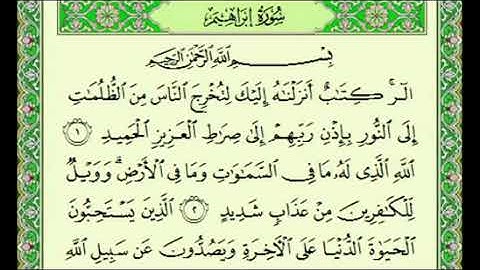 سُورَةُ إِبْرَاهِيمَ
بِسْمِ ٱللَّهِ ٱلرَّحْمَٰنِ ٱلرَّحِيمِ
الٓر ۚ كِتَٰبٌ أَنزَلْنَٰهُ إِلَيْكَ لِتُخْرِجَ ٱلنَّاسَ مِنَ ٱلظُّلُمَٰتِ
إِلَى ٱلنُّورِ بِإِذْنِ رَبِّهِمْ إِلَىٰ صِرَٰطِ ٱلْعَزِيزِ ٱلْحَمِيدِ ١
ٱللَّهِ ٱلَّذِى لَهُۥ مَا فِى ٱلسَّمَٰوَٰتِ وَمَا فِى ٱلْأَرْضِ ۗ وَوَيْلٌ
لِّلْكَٰفِرِينَ مِنْ عَذَابٍ شَدِيدٍ ٢ ٱلَّذِينَ يَسْتَحِبُّونَ
ٱلْحَيَوٰةَ ٱلدُّنْيَا عَلَى ٱلْءَاخِرَةِ وَيَصُدُّونَ عَن سَبِيلِ ٱللَّهِ